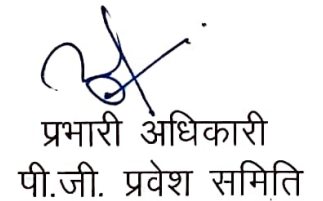 प्रभारी अधिकारी
पी.जी. प्रवेश समिति